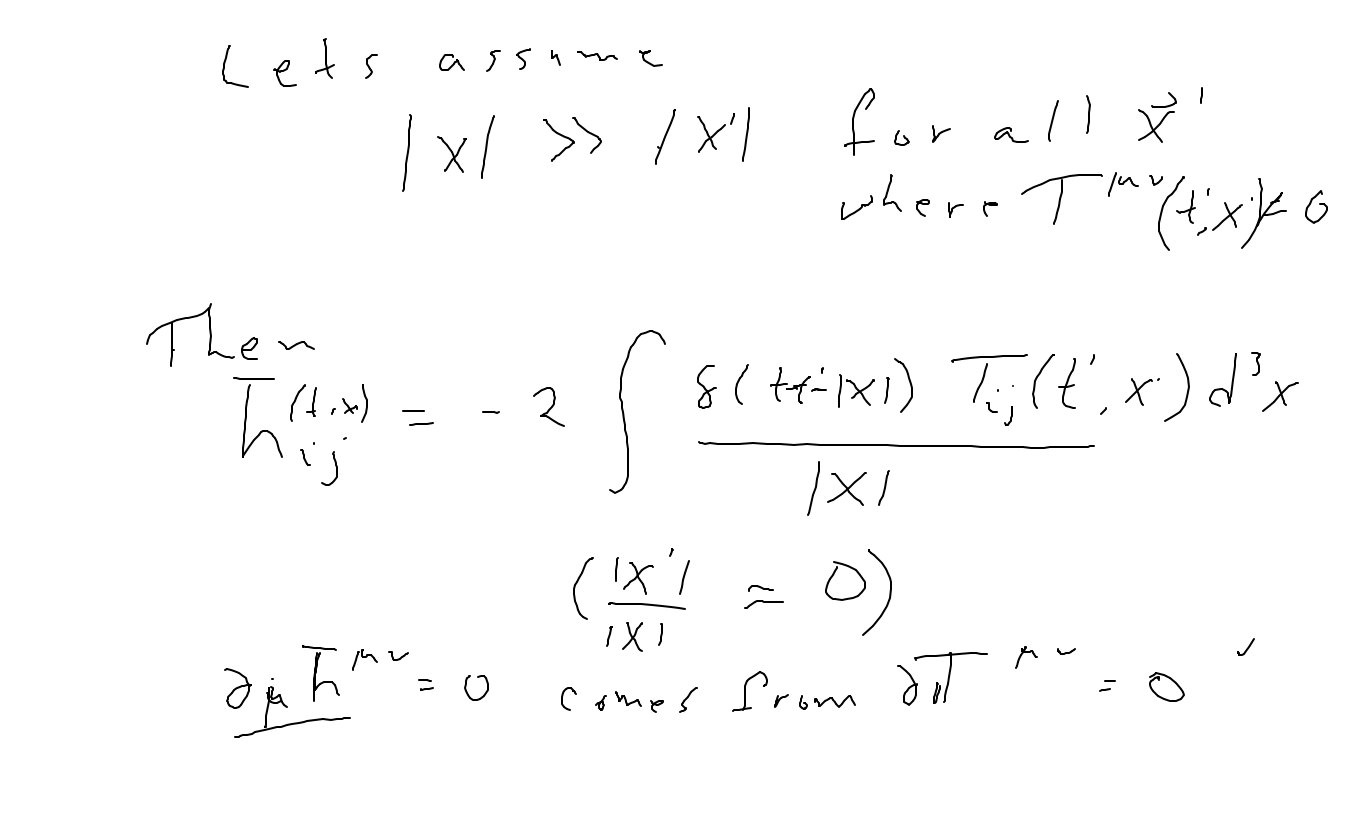 Lets assume
|x| >> |x'| for all x⃗'
where T^{μν}(t',x') ≠ 0
Then
h̄_{ij}^{(t,x)} = - 2 ∫ δ(t-t'-|x|) T_{ij}(t', x') d³x / |x|
(|x'| / |x| ≈ 0)
∂_μ h̄^{μν} = 0 comes from ∂_μ T^{μν} = 0 ✓